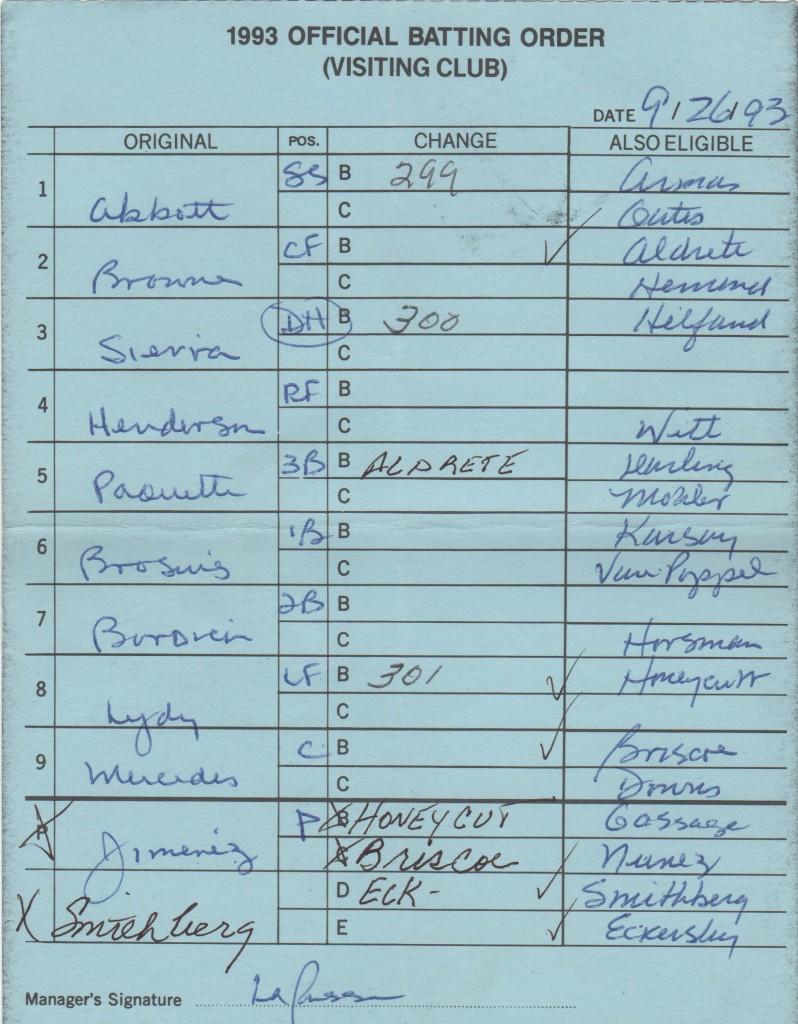 1993 OFFICIAL BATTING ORDER
(VISITING CLUB)
DATE 9/26/93
ORIGINAL POS. CHANGE ALSO ELIGIBLE
1 Abbott SS B 299 Armas
C Oates
2 Browne CF B Aldrete
C Hemond
3 Sierra DH B 300 Helfand
C
4 Henderson RF B
C Witt
5 Paquette 3B B ALDRETE Darling
C Mohler
6 Brosius 1B B Karsay
C Van Poppel
7 Bordick 2B B
C Horsman
8 Lydy LF B 301 Honeycutt
C
9 Mercedes C B Briscoe
C Downs
P Jimenez P B HONEYCUT Gossage
C BRISCOE Nunez
D ECK- Smithberg
X Smithberg E Eckersley
Manager's Signature La Russa